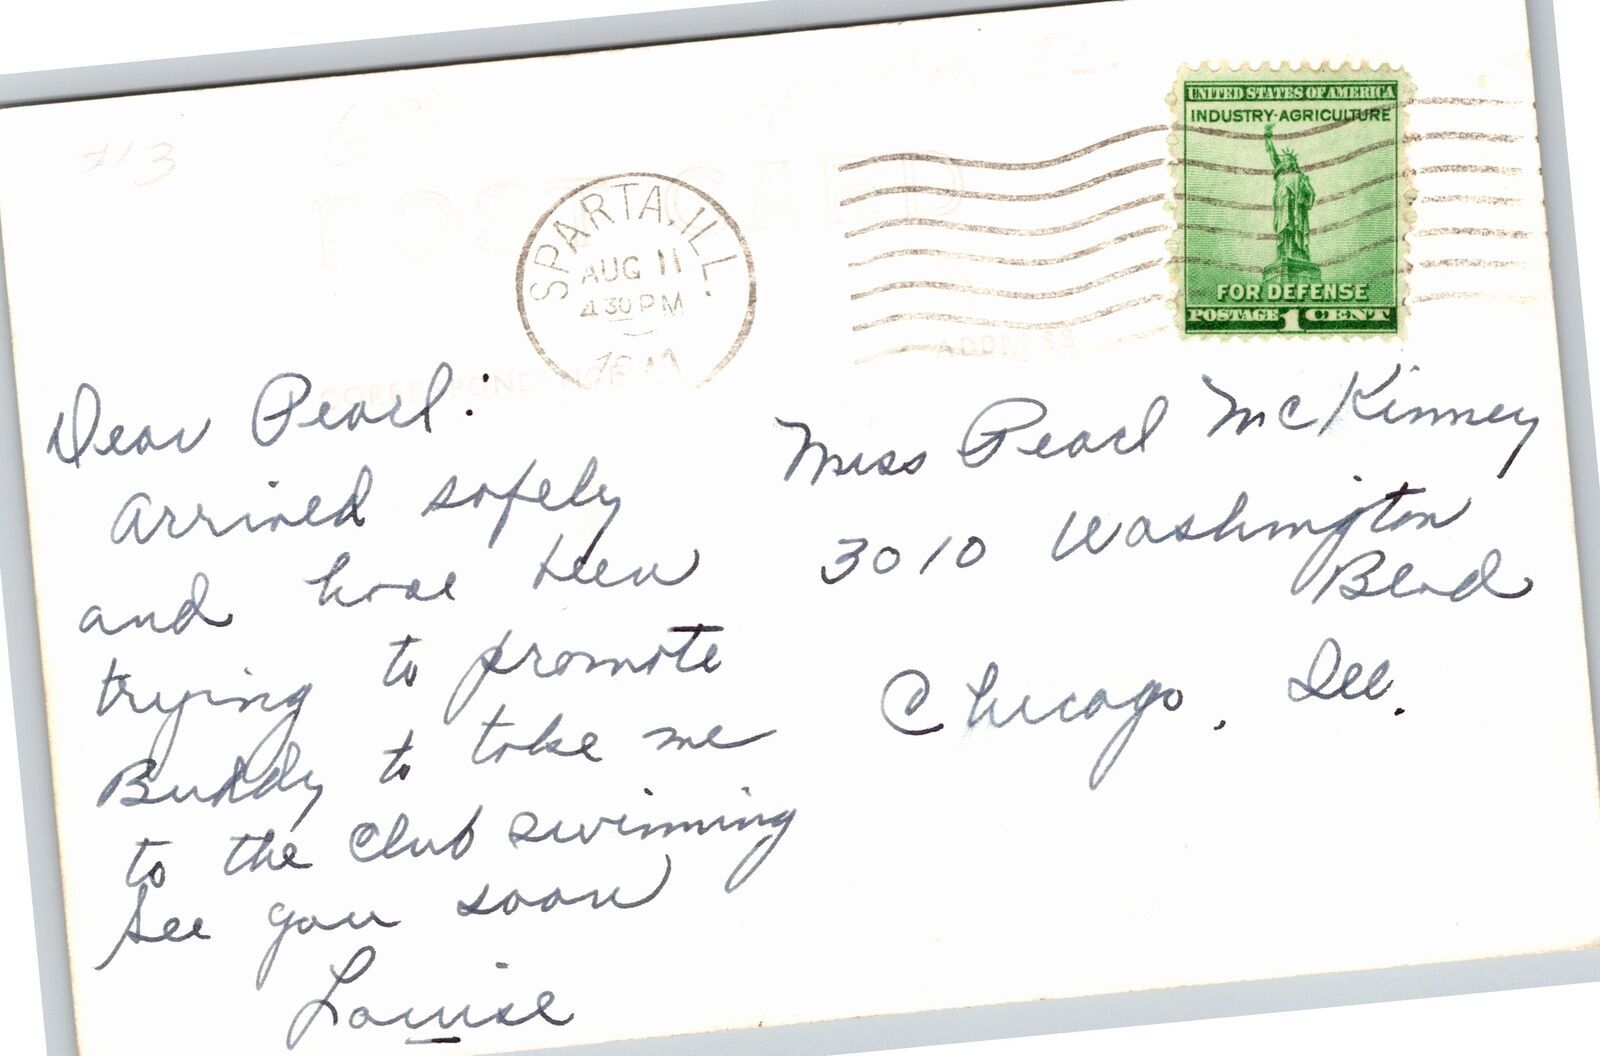 713
POST CARD
SPARTA, ILL.
AUG 11
4 30 PM
UNITED STATES OF AMERICA
INDUSTRY-AGRICULTURE
FOR DEFENSE
POSTAGE 1 CENT
CORRESPONDENCE
ADDRESS
Dear Pearl:
Arrived safely
and have been
trying to promote
Buddy to take me
to the Club swimming
See you soon
Louise
Miss Pearl McKinney
3010 Washington
Blvd
Chicago, Ill.